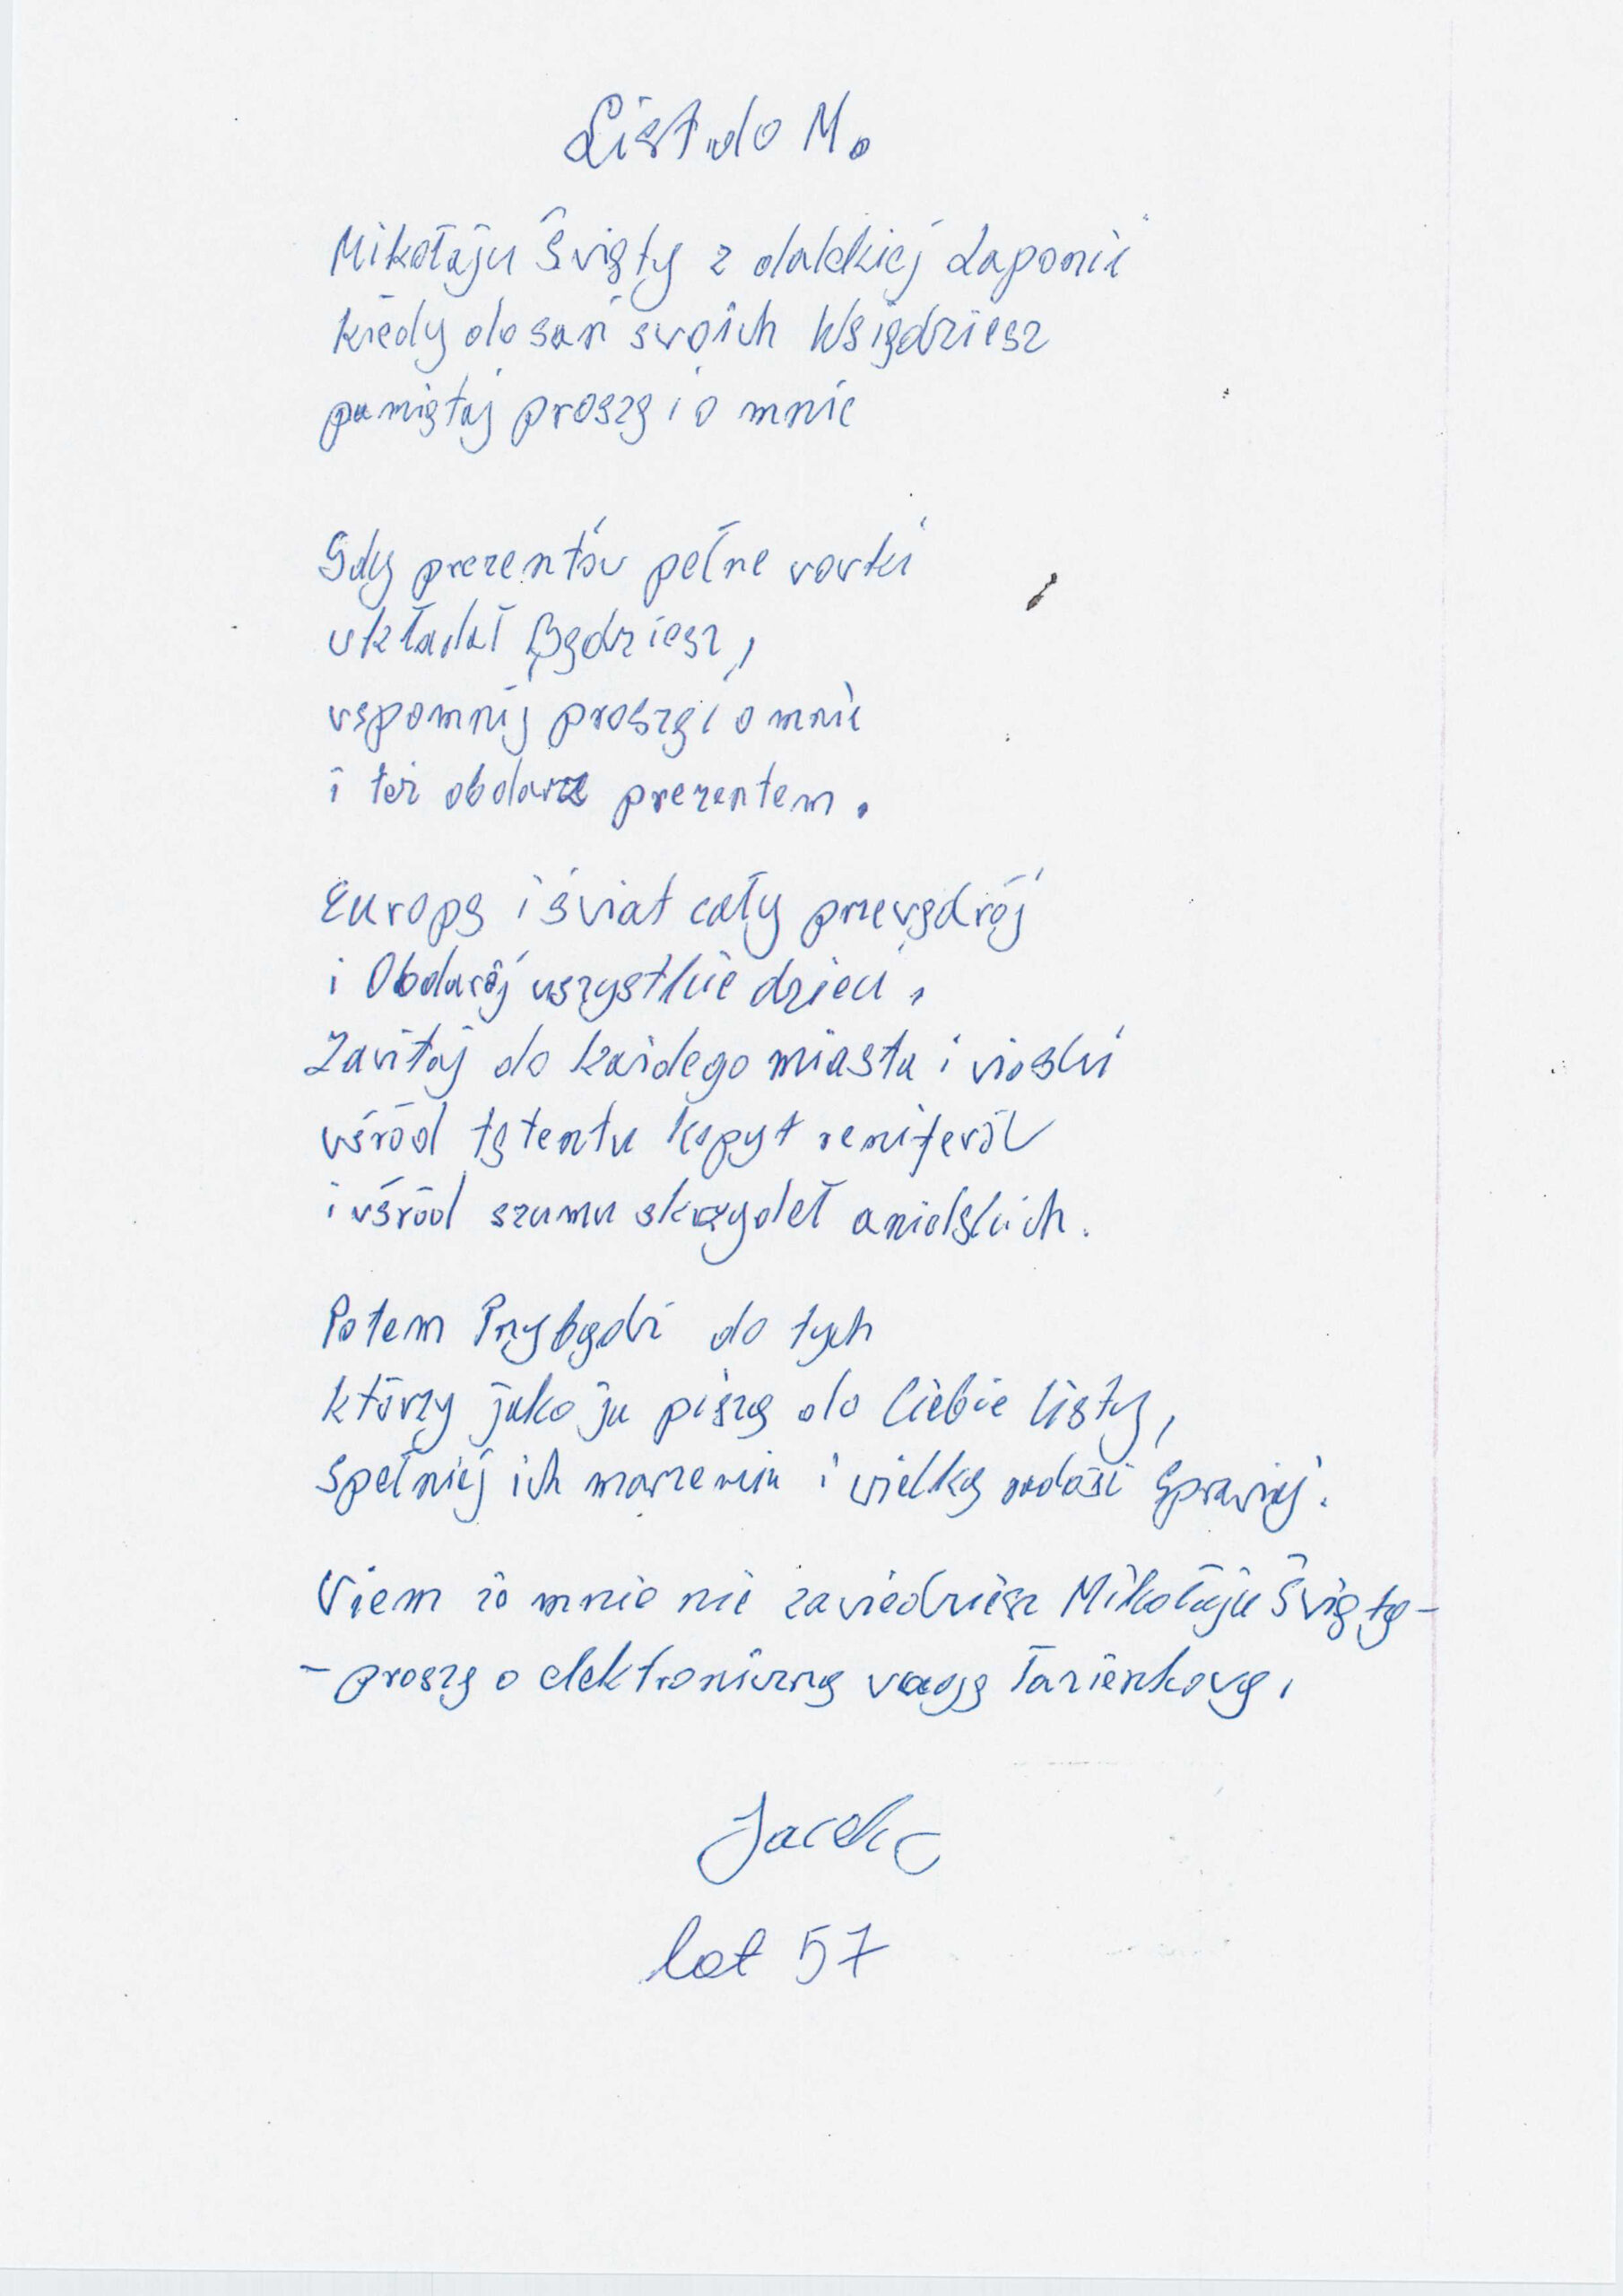 List do M.
Mikołaju Święty z dalekiej Laponii
kiedy do sań swoich Wsiądziesz
pamiętaj proszę i o mnie
Gdy prezentów pełne worki
układał Będziesz,
wspomnij proszę i o mnie
i też obdarz prezentem.
Europę i świat cały przewędrój
i Obdaruj wszystkie dzieci,
Zawitaj do każdego miasta i wioski
wśród tętentu kopyt reniferów
i wśród szumu skrzydeł anielskich.
Potem Przybądź do tych
którzy jako ja piszą do Ciebie listy,
spełniej ich marzenia i wielką radość Sprawiaj.
Wiem że mnie nie zawiedziesz Mikołaju Święty -
- proszę o elektroniczną wagę łazienkową,
Jacek
lat 57